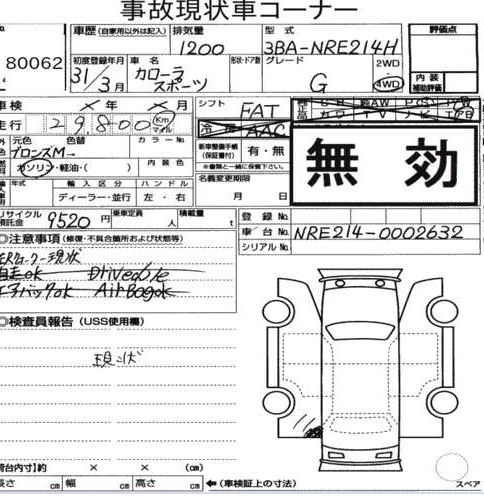 事故現状車コーナー
80062
車歴 (自家用以外は記入) 排気量 型式 評価点
1200 3BA-NRE214H
初度登録年月 車名 形状・ドア数 グレード 2WD
31/3月 カローラ スポーツ G 4WD
内装 補助評価
車検 × 年 × 月 シフト FAT
走行 29,800 Km マイル 冷房 AAC
元色 色替 カラーNo.
ブロンズM→
ガソリン・軽油・( ) 内装色
新車整備手帳 (保証書付) 有・無
※書類と一緒に保管して下さい。
名義変更期限
月 日
無効
年式 輸入区分 ハンドル
ディーラー・並行 左・右
リサイクル預託金 9520円 乗車定員 人 積載量 t
登録No.
車台No. NRE214-0002632
シリアルNo.
◎注意事項 (修復・不具合箇所および状態等)
コーナー現状
自走ok Drivable
エアバックok Air Bag ok
◎検査員報告 (USS使用欄)
現状
荷台内寸】約 × × (cm)
長さ cm 幅 cm 高さ cm ←(車検証上の寸法)
スペア